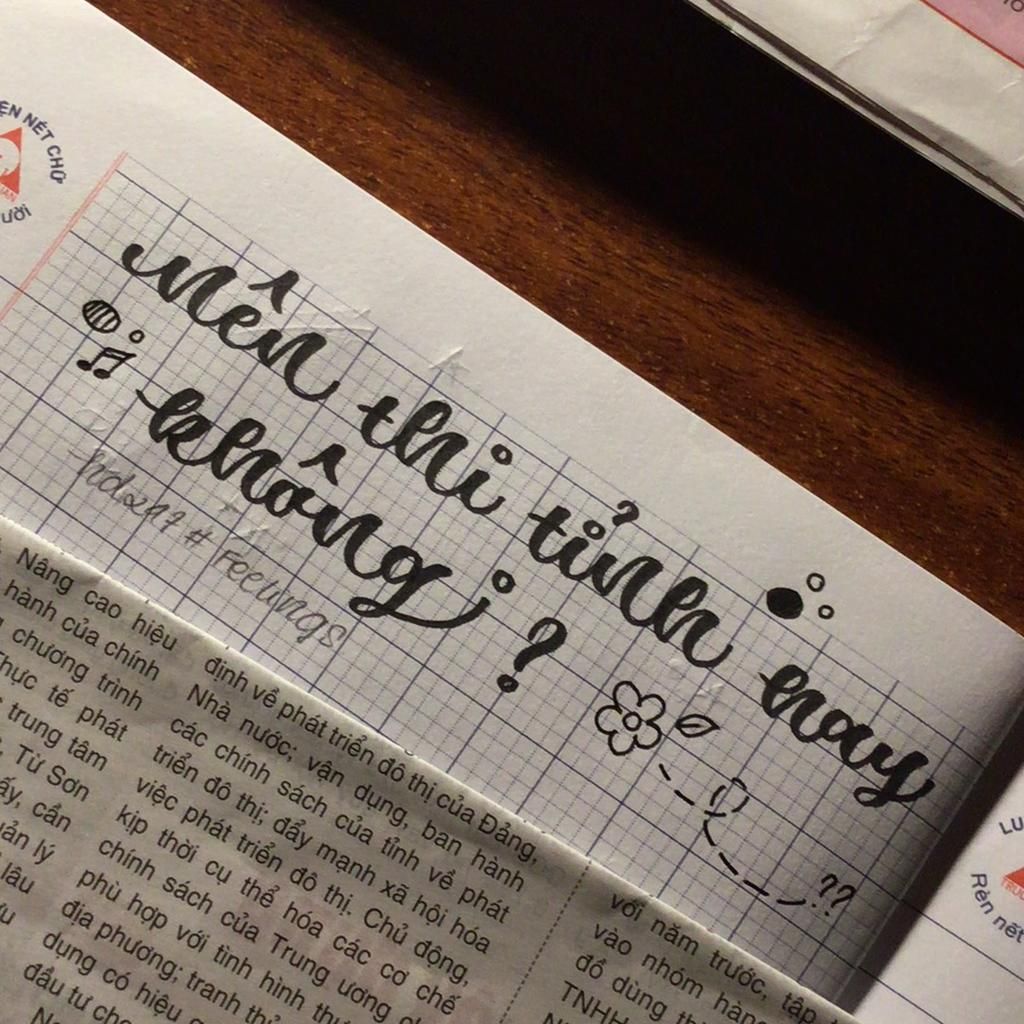 ỆN NÉT CHỮ
ười
nên thi tỉnh hay
không ?
hod247 # Feelings
??
Nâng cao hiệu
hành của chính
chương trình
Thực tế phát
trung tâm
Từ Sơn
ấy, cần
uản lý
lâu
định về phát triển đô thị của Đảng,
Nhà nước; vận dụng, ban hành
các chính sách của tỉnh về phát
triển đô thị; đẩy mạnh xã hội hóa
việc phát triển đô thị. Chủ động,
kịp thời cụ thể hóa các cơ chế
chính sách của Trung ương
phù hợp với tình hình
địa phương; tranh
dụng có hiệu
đầu tư
với năm trước, tập
vào nhóm hàng
đồ dùng
TNHH
LU
Rèn nét